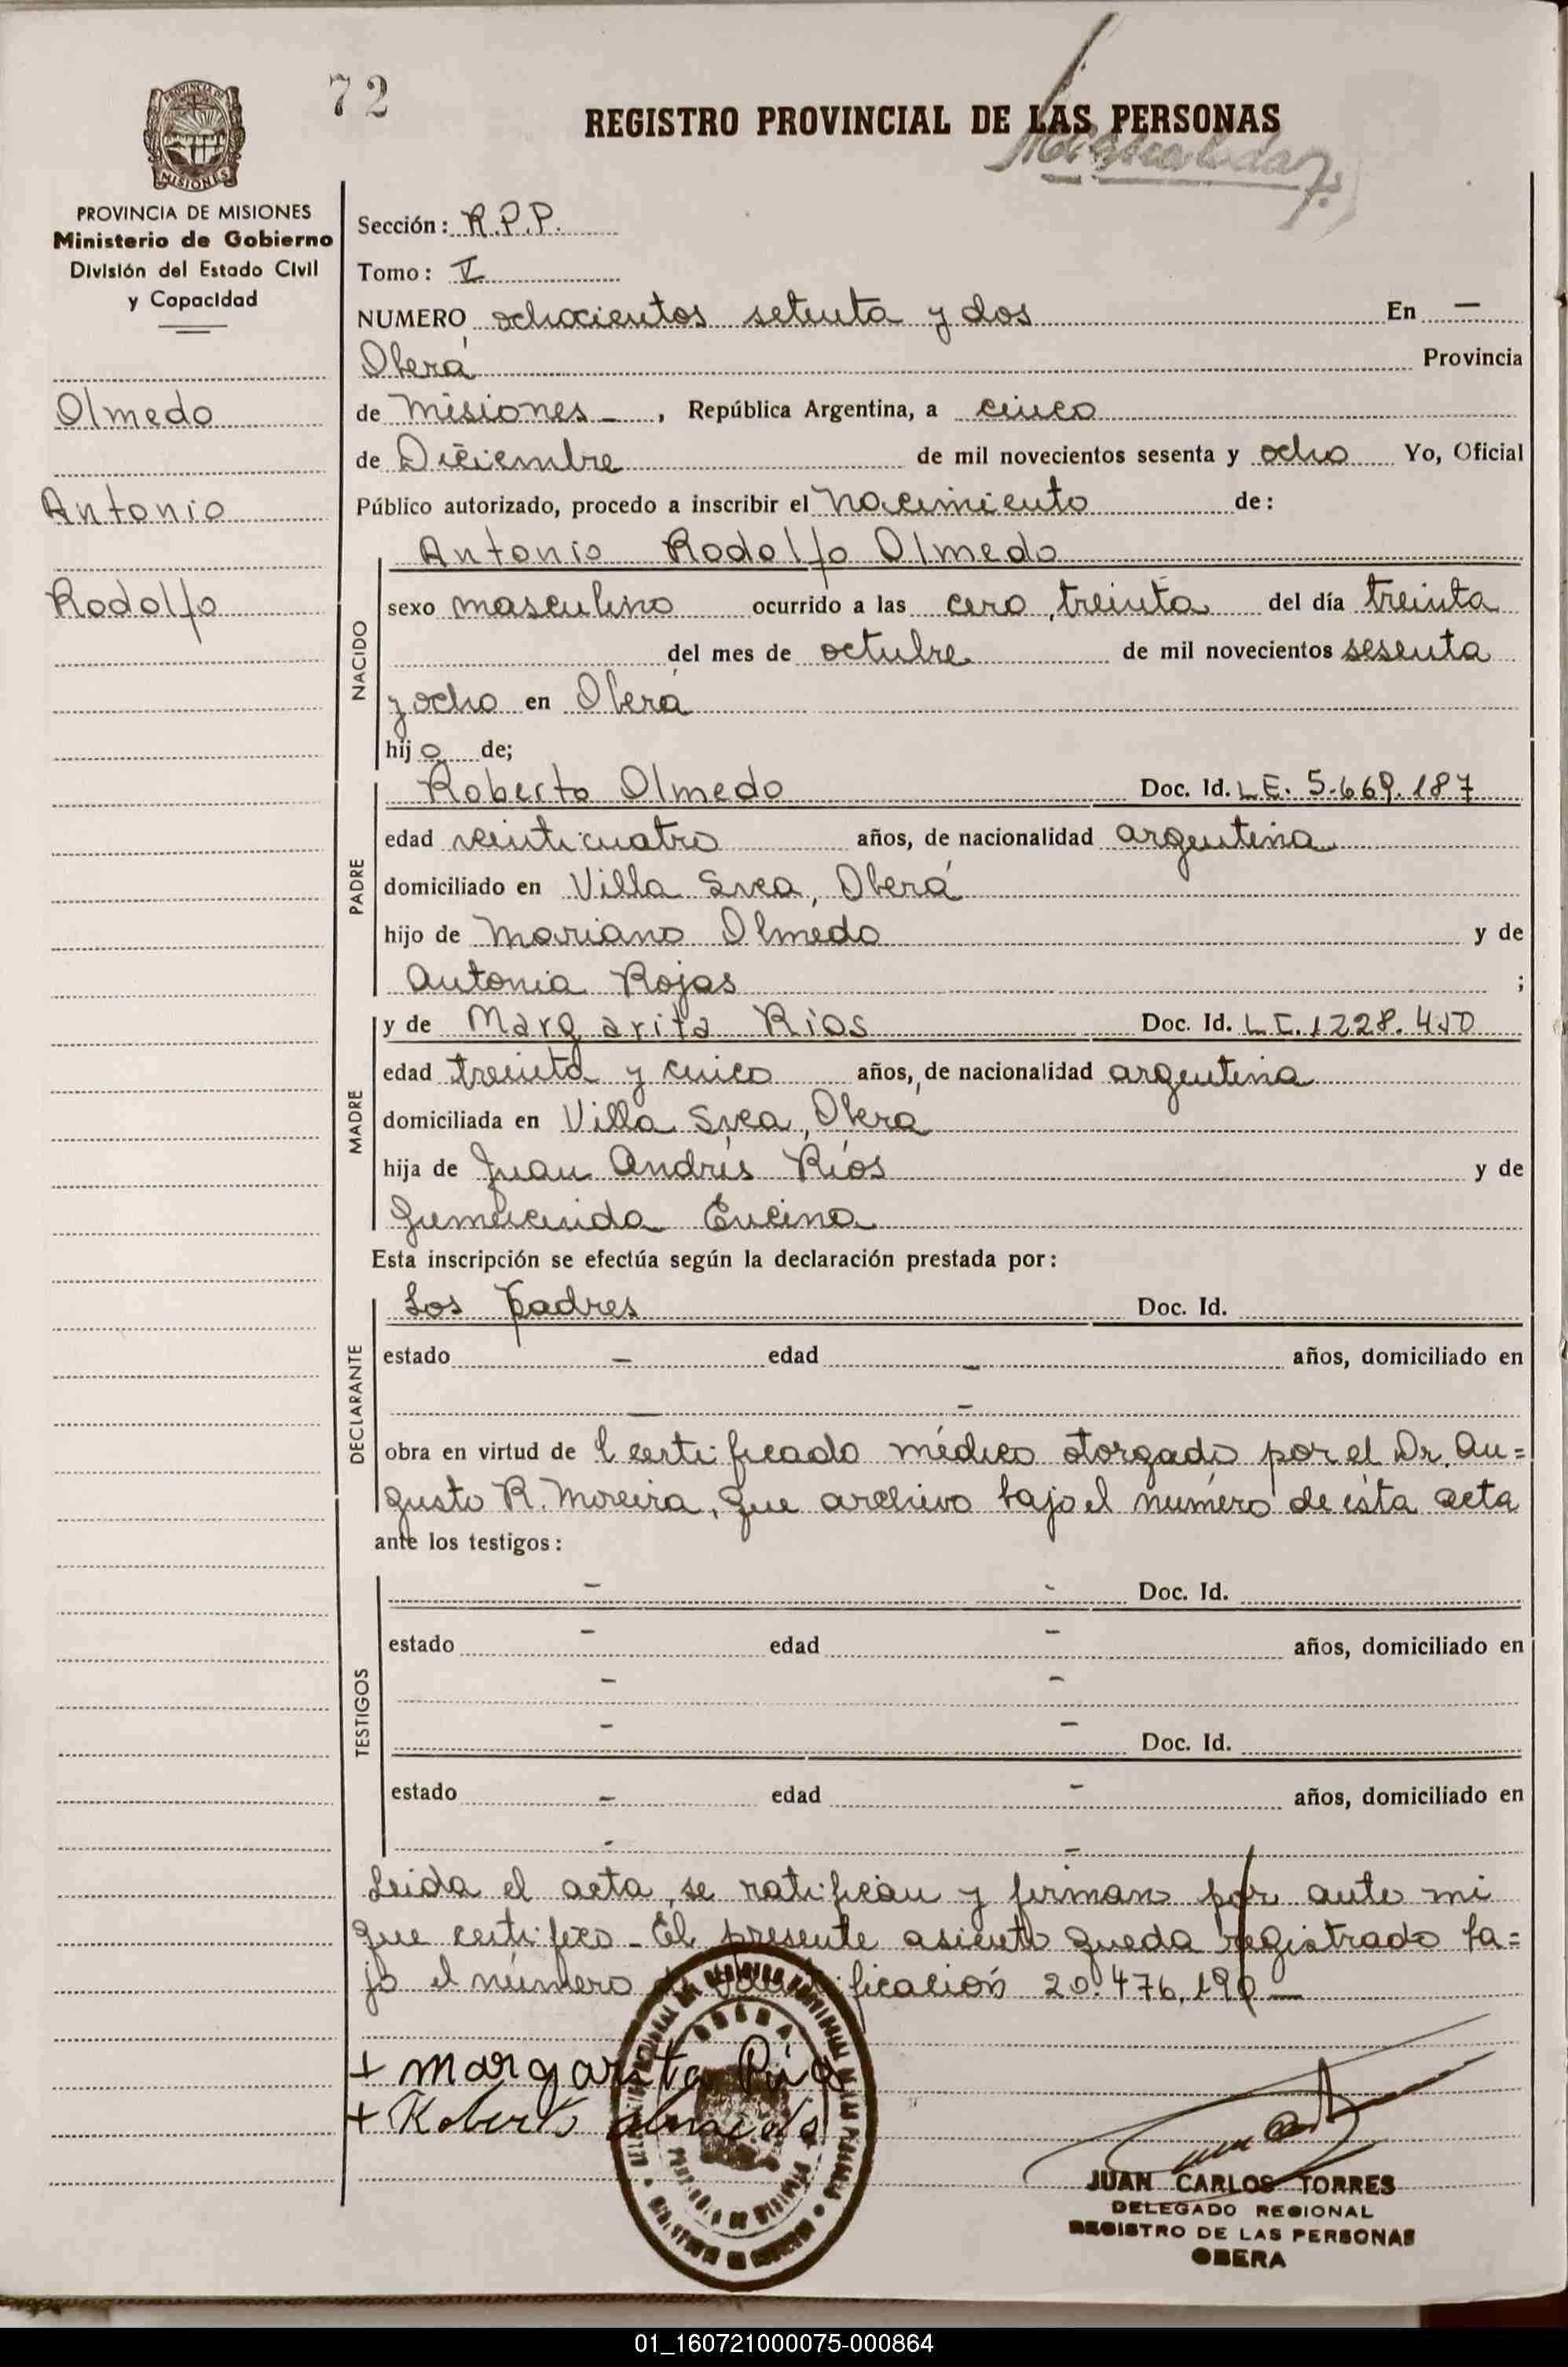 72
REGISTRO PROVINCIAL DE LAS PERSONAS
MISIONES
PROVINCIA DE MISIONES
Ministerio de Gobierno
División del Estado Civil
y Capacidad
Olmedo
Antonio
Rodolfo
Sección: R.P.P.
Tomo: V
NUMERO ochocientos setenta y dos En —
Oberá Provincia
de Misiones - , República Argentina, a cinco
de Diciembre de mil novecientos sesenta y ocho Yo, Oficial
Público autorizado, procedo a inscribir el nacimiento de:
Antonio Rodolfo Olmedo
NACIDO
sexo masculino ocurrido a las cero, treinta del día treinta
del mes de octubre de mil novecientos sesenta
y ocho en Oberá
hijo de;
PADRE
Roberto Olmedo Doc. Id. L.E. 5.669.187
edad veinticuatro años, de nacionalidad argentina
domiciliado en Villa Svea, Oberá
hijo de Mariano Olmedo y de
Antonia Rojas ;
MADRE
y de Margarita Rios Doc. Id. 1228.450
edad treinta y cinco años, de nacionalidad argentina
domiciliada en Villa Svea, Oberá
hija de Juan Andrés Ríos y de
Gumercinda Encina
Esta inscripción se efectúa según la declaración prestada por:
DECLARANTE
Los padres Doc. Id.
estado - edad - años, domiciliado en
— -
obra en virtud de l certificado médico otorgado por el Dr. Au=
gusto R. Moreira, que archivo bajo el número de ésta acta
ante los testigos:
TESTIGOS
- - Doc. Id.
estado - edad - años, domiciliado en
- -
- - Doc. Id.
estado - edad - años, domiciliado en
- -
Leida el acta, se ratifican y firman por ante mi
que certifico - El presente asiento queda registrado ba=
jo el número de identificación 20.476.190 —
+ Margarita Rios
+ Roberto Olmedo
OBERA
JUAN CARLOS TORRES
DELEGADO REGIONAL
REGISTRO DE LAS PERSONAS
OBERA
01_160721000075-000864